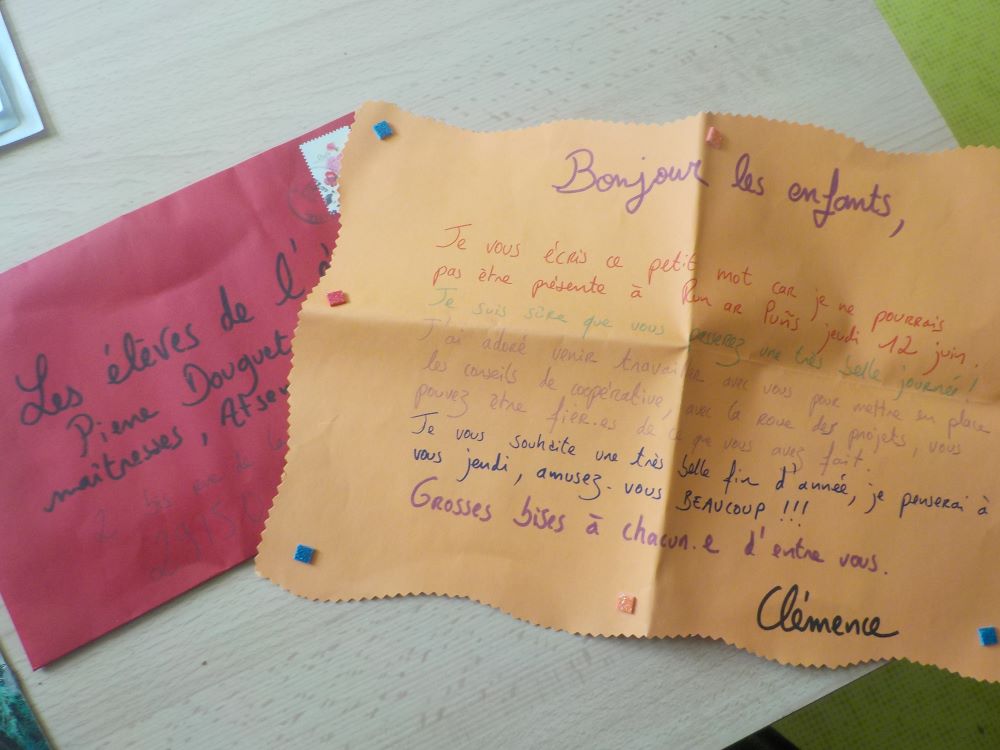 Bonjour les enfants,
Je vous écris ce petit mot car je ne pourrais
pas être présente à Run ar Puñs jeudi 12 juin.
Je suis sûre que vous passerez une très belle journée !
J'ai adoré venir travailler avec vous pour mettre en place
les conseils de coopérative, avec la roue des projets, vous
pouvez être fièr.es de ce que vous avez fait.
Je vous souhaite une très belle fin d'année, je penserai à
vous jeudi, amusez-vous BEAUCOUP !!!
Grosses bises à chacun.e d'entre vous.
Clémence
Les élèves de l'
Pierre Douguet
maitresses, Atsem
2 bis rue de